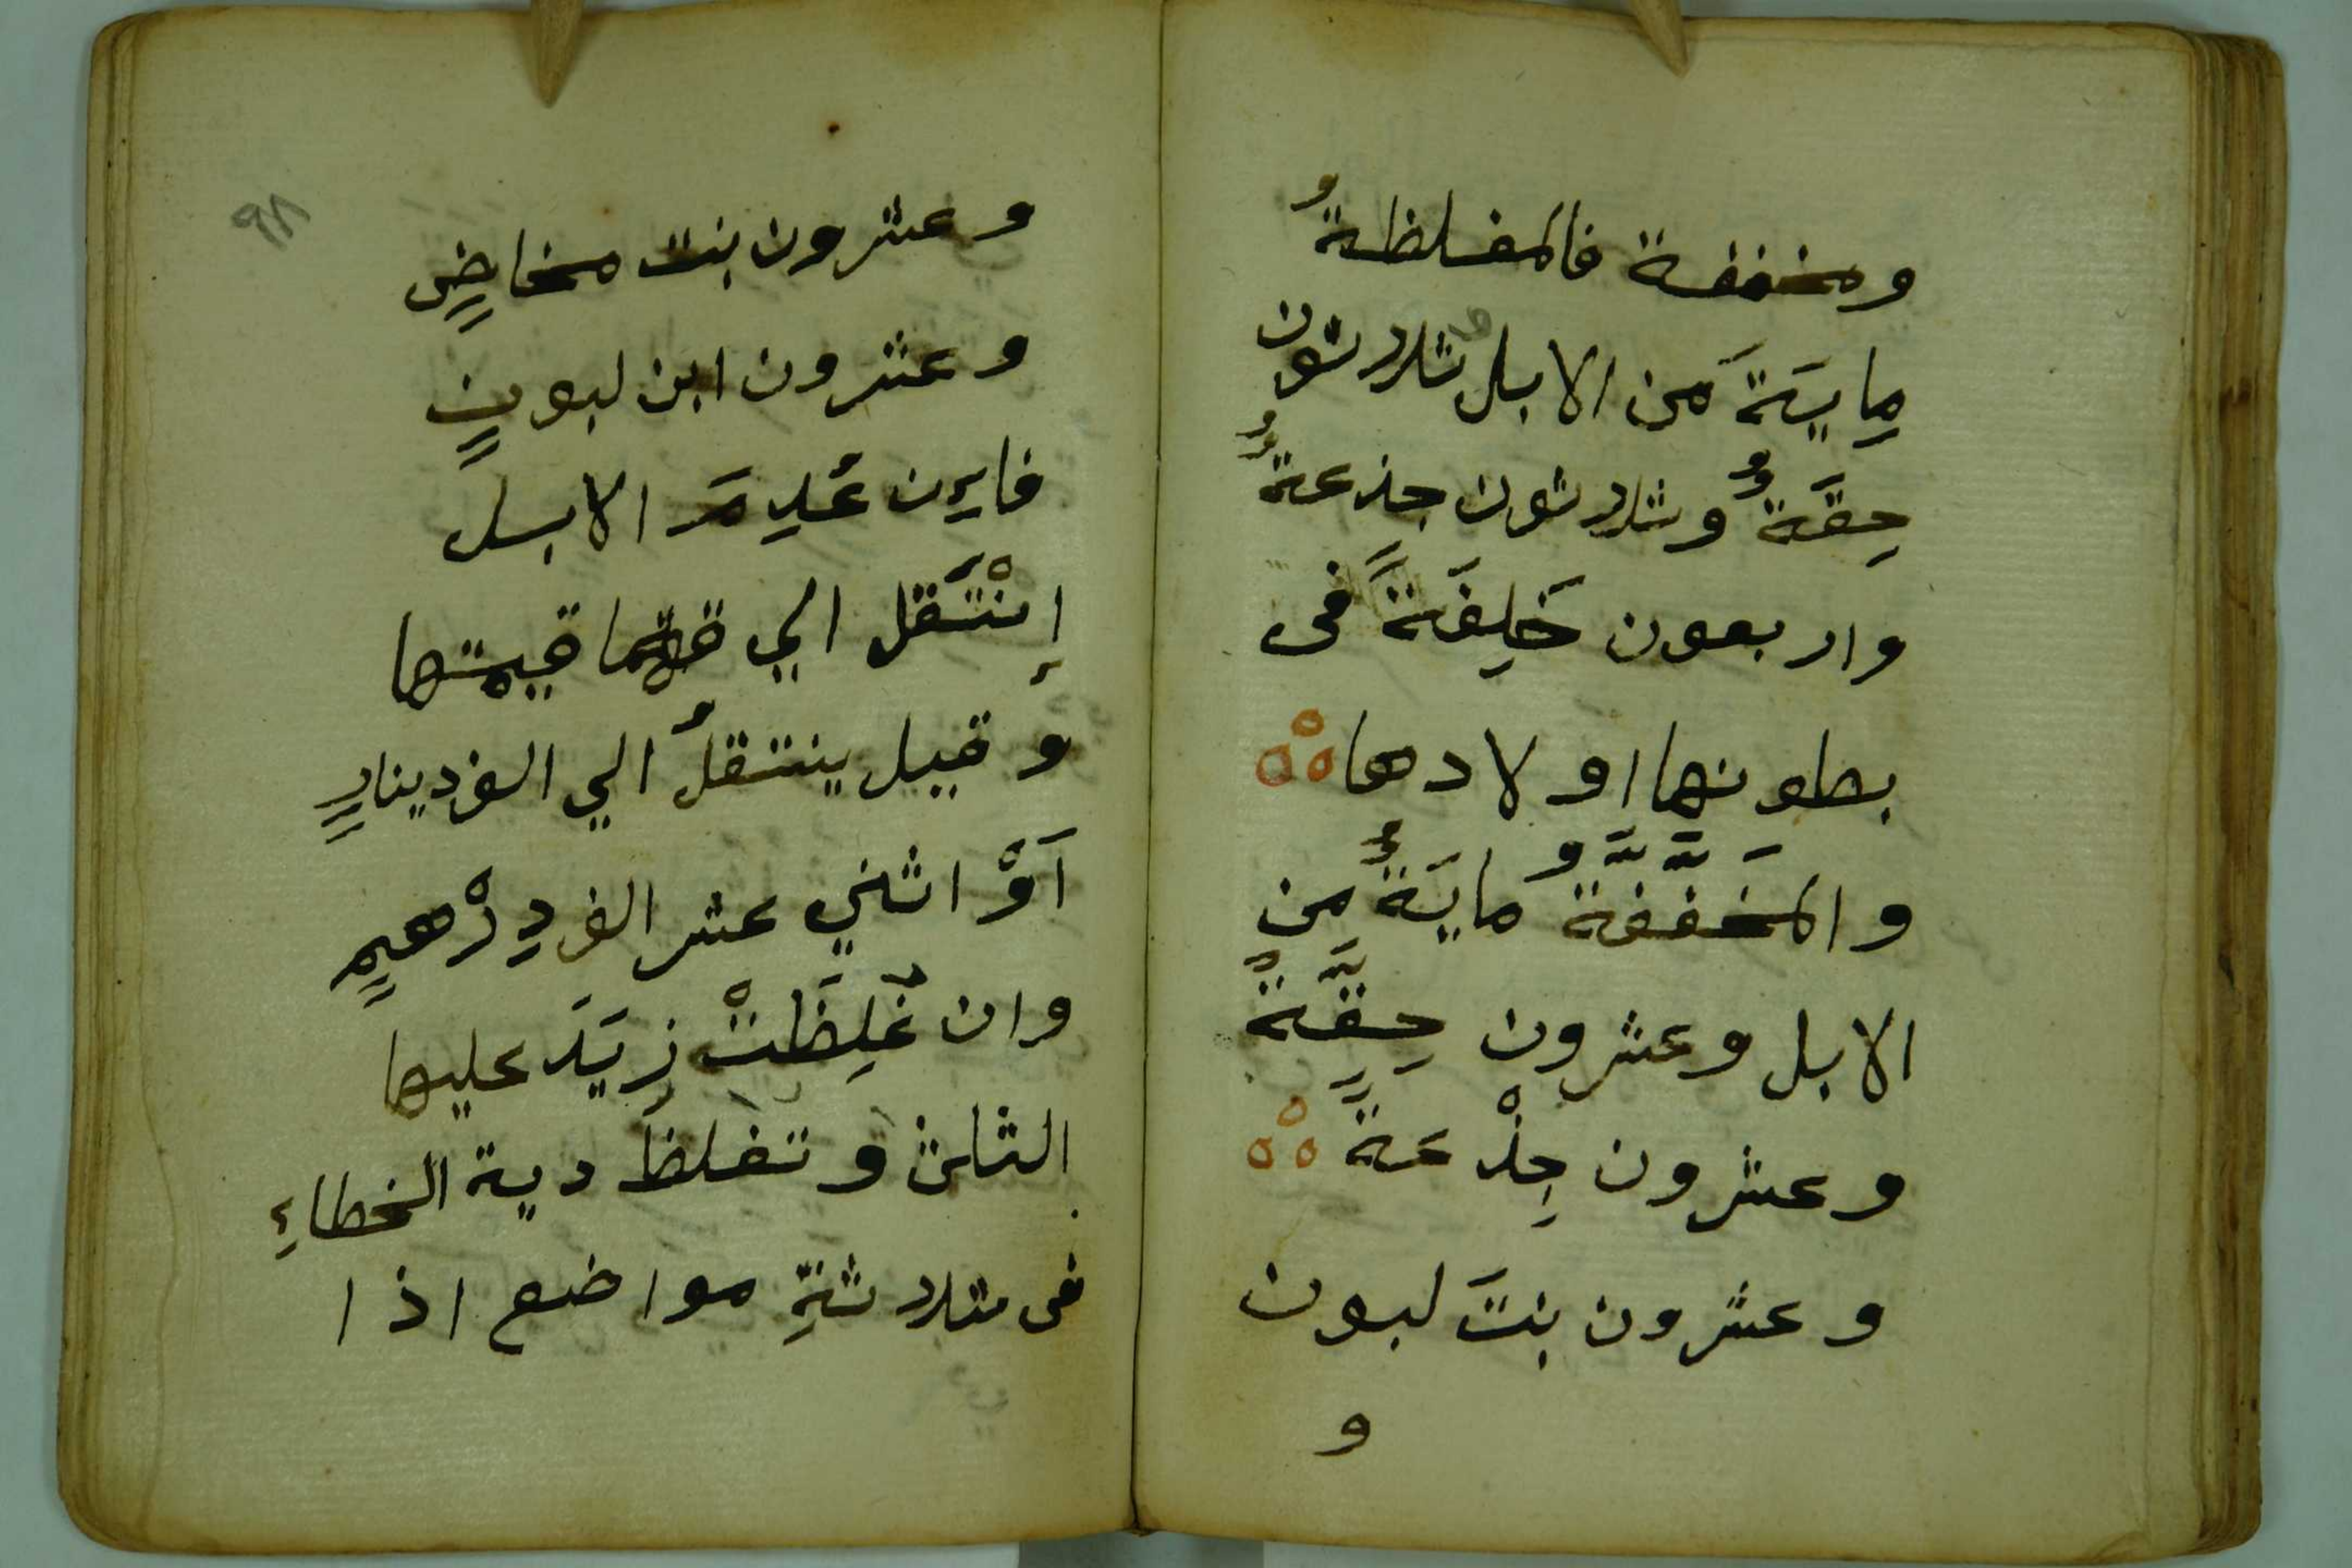 ومخففة فالمغلظةُ
مِايَةَ مَن الابل ثلاثون
حِقَةٌ وثلاثون جذعةٌ
واربعون خَلِفَةً فى
بطونها اولادها
والمَخَفَّفَةُ مايَةٌ مِن
الابل وعشرون حِقَّةً
وعشرون جِذْعَةً
وعشرون بنتَ لبون
و
٩٨
وعشرون بنت مخاضٍ
وعشرون ابن لبونٍ
فاِن عُدِمَ الابل
إنْتَقل الي قيمتها
وقيل ينتقلُ الي الف دينارٍ
اَوْ اثني عشر الف دِرْهمٍ
وان غُلِظَتْ زيَدَ عليها
الثلث وتغلظ دية الخطاءِ
فى ثلاثةِ مواضع اذا